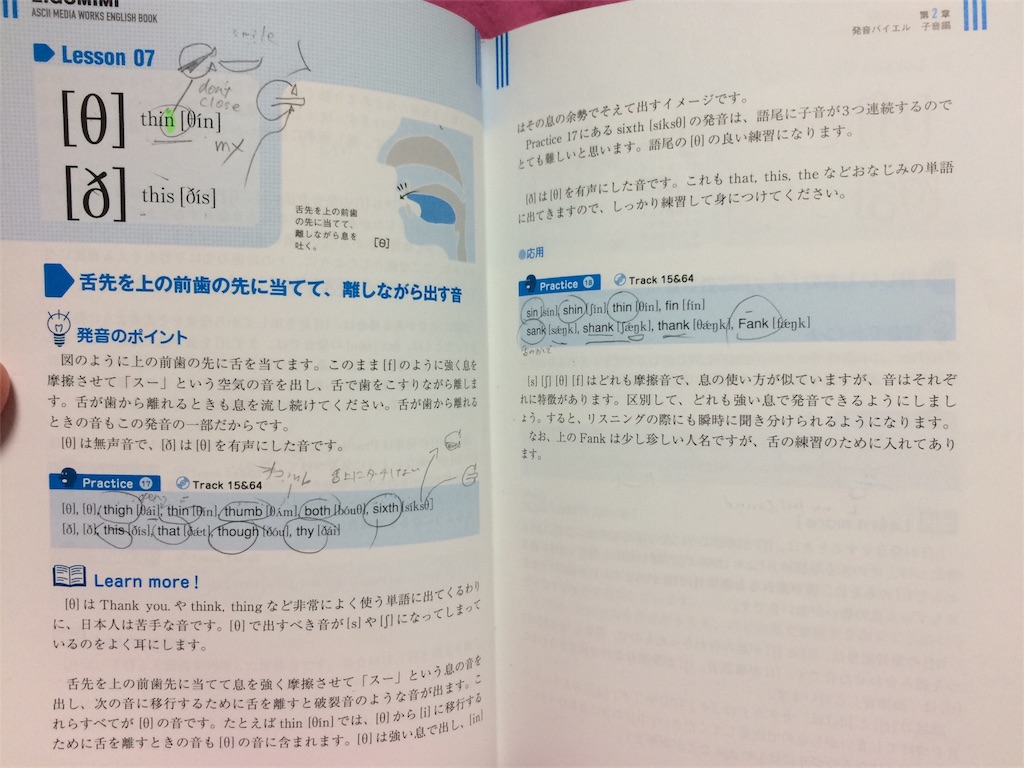 ASCII MEDIA WORKS ENGLISH BOOK
Lesson 07
smile
don't
close
[θ] thin [θín]
[ð] this [ðís]
舌先を上の前歯
の先に当てて、
離しながら息を
吐く。
[θ]
舌先を上の前歯の先に当てて、離しながら出す音
発音のポイント
図のように上の前歯の先に舌を当てます。このまま[f]のように強く息を
摩擦させて「スー」という空気の音を出し、舌で歯をこすりながら離しま
す。舌が歯から離れるときも息を流し続けてください。舌が歯から離れる
ときの音もこの発音の一部だからです。
[θ]は無声音で、[ð]は[θ]を有声にした音です。
Practice 17 Track 15&64
[θ], [θ], thigh [θái], thin [θín], thumb [θʌ́m], both [bóuθ], sixth [síksθ]
[ð], [ð], this [ðís], that [ðǽt], though [ðóu], thy [ðái]
Learn more!
[θ]はThank you.やthink, thingなど非常によく使う単語に出てくるわり
に、日本人は苦手な音です。[θ]で出すべき音が[s]や[ʃ]になってしまって
いるのをよく耳にします。
舌先を上の前歯先に当てて息を強く摩擦させて「スー」という息の音を
出し、次の音に移行するために舌を離すと破裂音のような音が出ます。こ
れらすべてが[θ]の音です。たとえばthin [θín]では、[θ]から[i]に移行する
ために舌を離すときの音も[θ]の音に含まれます。[θ]は強い息で出し、[in]
第2章
発音バイエル 子音編
はその息の余勢でそえて出すイメージです。
Practice 17にあるsixth [síksθ]の発音は、語尾に子音が3つ連続するので
とても難しいと思います。語尾の[θ]の良い練習になります。
[ð]は[θ]を有声にした音です。これもthat, this, theなどおなじみの単語
に出てきますので、しっかり練習して身につけてください。
応用
Practice 18 Track 15&64
sin [sín], shin [ʃín], thin [θín], fin [fín]
sank [sǽŋk], shank [ʃǽŋk], thank [θǽŋk], Fank [fǽŋk]
[s] [ʃ] [θ] [f]はどれも摩擦音で、息の使い方が似ていますが、音はそれぞ
れに特徴があります。区別して、どれも強い息で発音できるようにしまし
ょう。すると、リスニングの際にも瞬時に聞き分けられるようになります。
なお、上のFankは少し珍しい人名ですが、舌の練習のために入れてあり
ます。